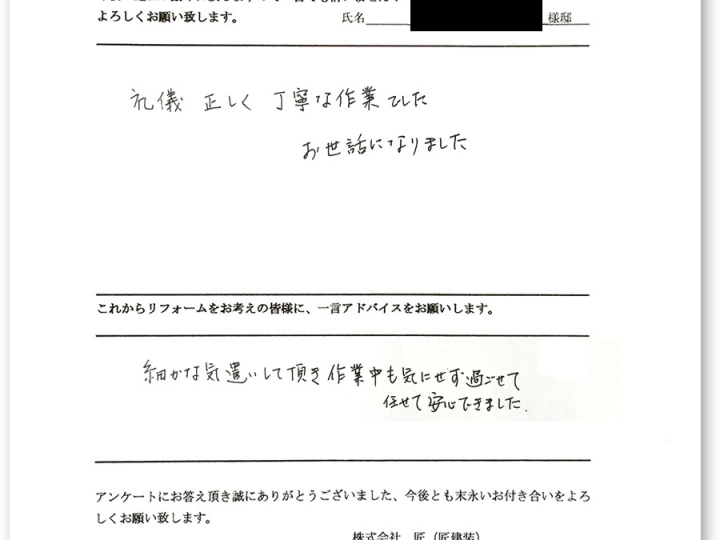 よろしくお願い致します。 氏名 様邸
礼儀 正しく 丁寧な作業でした
お世話になりました
これからリフォームをお考えの皆様に、一言アドバイスをお願いします。
細かな気遣いして頂き作業中も気にせず過ごせて
任せて安心できました.
アンケートにお答え頂き誠にありがとうございました、今後とも末永いお付き合いをよろ
しくお願い致します。
株式会社 匠（匠建装）